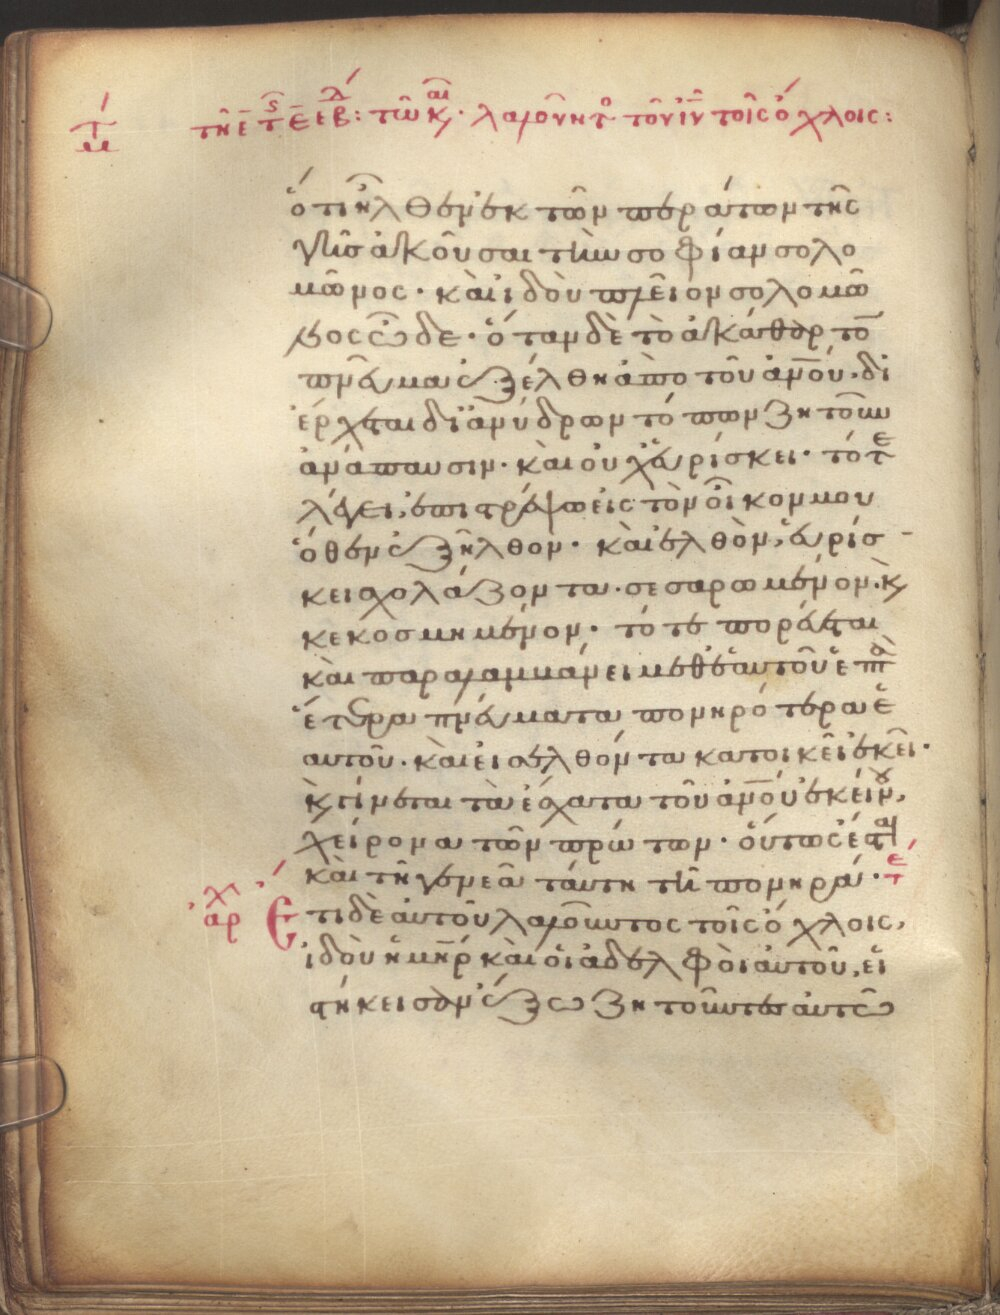 τῆ ε̄ τ ε̄ ἑβ: τῶ κ. λαλοῦντ τοῦ ἰῦ τοῖς ὄχλοις:
ὅτι ἦλθεν ἐκ τῶν περάτων τῆς
γῆς ἀκοῦσαι τὴν σοφίαν σολο
μῶνος· καὶ ἰδοὺ πλεῖον σολομῶ
νος ὧδε· ὅταν δὲ τὸ ἀκάθαρτον
πνεῦμα ἐξέλθη ἀπὸ τοῦ ἀνου· δι
έρχεται δι ἀνύδρων τόπων ζητοῦν
ἀνάπαυσιν· καὶ οὐχ εὑρίσκει· τότε
λέγει, ἐπιστρέψω εἰς τὸν οἶκον μου
ὅθεν ἐξῆλθον· καὶ ἐλθὸν, εὑρίσ
κει σχολάζοντα· σεσαρωμένον· κ
κεκοσμημένον· τότε πορεύεται
καὶ παραλαμβάνει μεθ ἑαυτοῦ ἑπτὰ
ἕτερα πνεύματα πονηρότερα ἑ
αυτοῦ· καὶ εἰσελθόντα κατοικεῖ ἐκεῖ·
κ γίνεται τὰ ἔσχατα τοῦ ἀνου ἐκείνου,
χείρονα τῶν πρώτων· οὕτως ἔσται
καὶ τῆ γενεᾶ ταύτη τῆ πονηρᾶ· τε
αρχ Ετι δὲ αὐτοῦ λαλοῦντος τοῖς ὄχλοις,
ἰδοὺ ἡ μηρ καὶ οἱ ἀδελφοὶ αὐτοῦ, εἱ
στήκεισαν ἔξω ζητοῦντες αὐτῶ